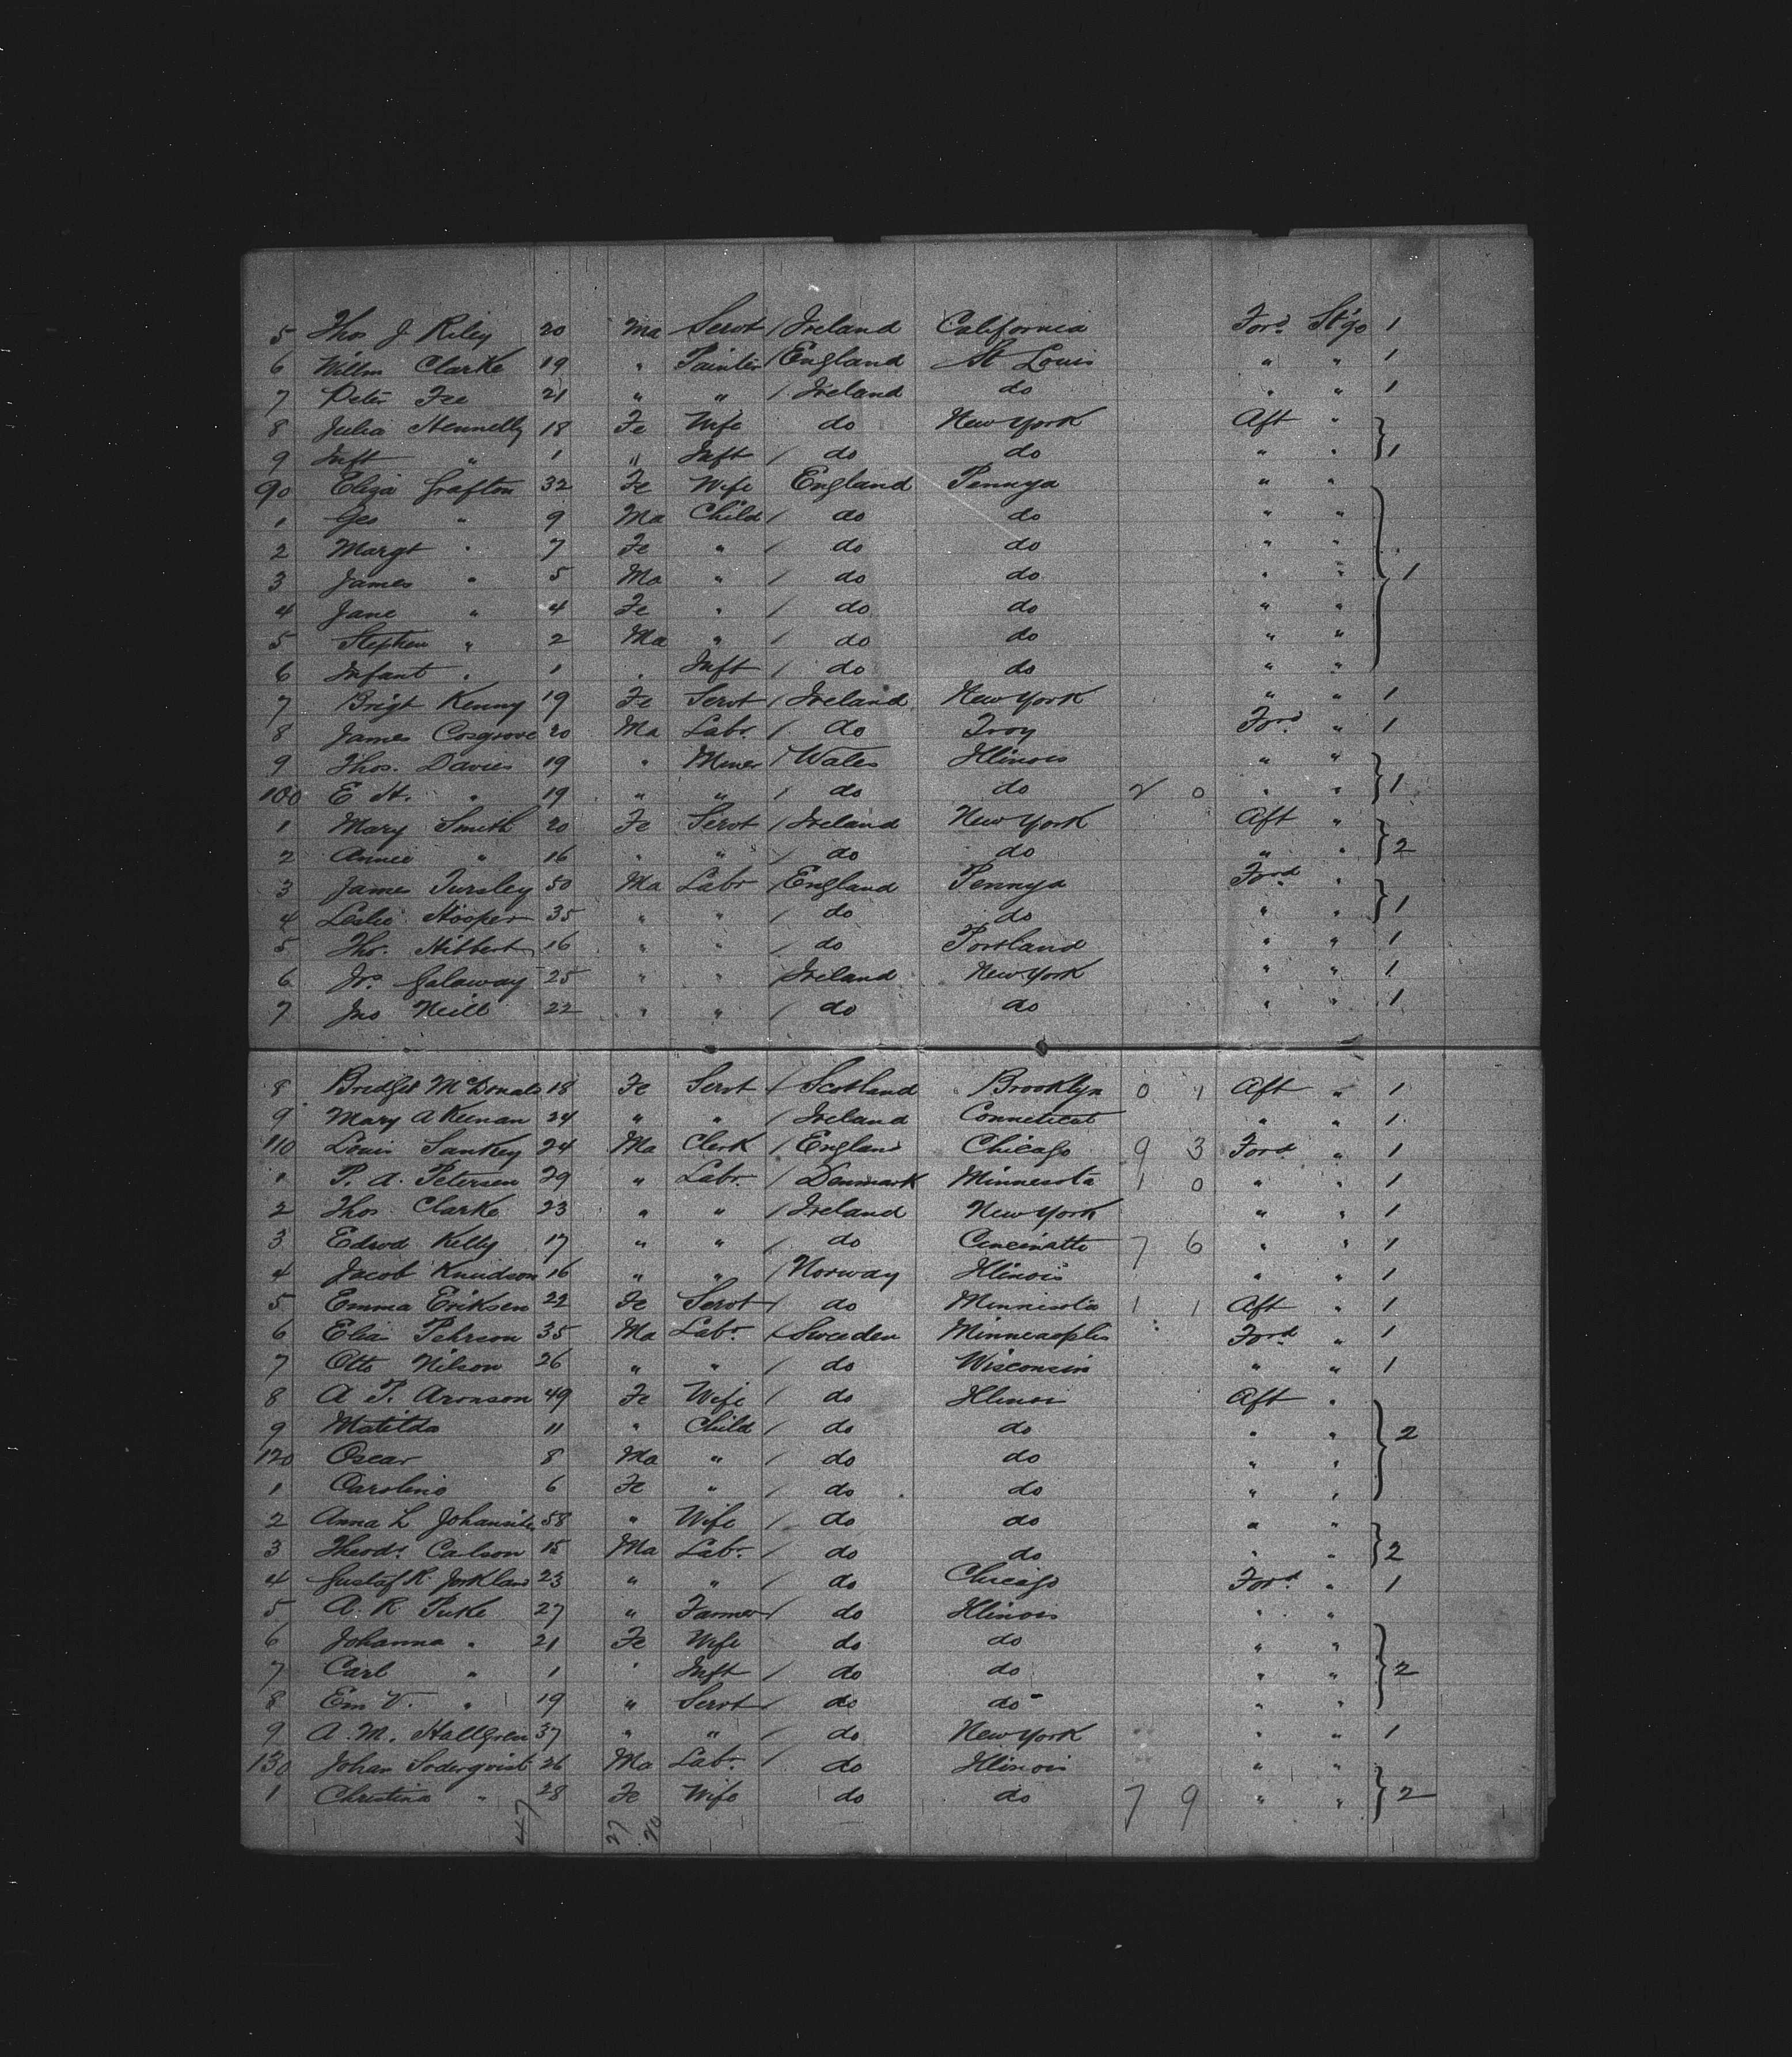 5 Thos J Riley 20 Ma Servt / Ireland California Ford Stge 1
6 Willm Clarke 19 " Painter / England St Louis " " 1
7 Peter Fee 21 " " / Ireland do " " 1
8 Julia Hennelly 18 Fe Wife do New York Aft "
9 Inft " 1 " Inft / do do " " } 1
90 Eliza Grafton 32 Fe Wife England Pennya " "
1 Geo " 9 Ma Child / do do " "
2 Margt " 7 Fe " / do do " "
3 James " 5 Ma " / do do " " } 1
4 Jane " 4 Fe " / do do " "
5 Stephen " 2 Ma " / do do " "
6 Infant " 1 " Inft / do do " "
7 Brigt Kenny 19 Fe Servt / Ireland New York " " 1
8 James Cosgrove 20 Ma Labr / do Troy Ford " 1
9 Thos. Davies 19 " Miner / Wales Illinois " "
100 E H. " 19 " " / do do 2 0 " " } 1
1 Mary Smith 20 Fe Servt / Ireland New York Aft "
2 Annie " 16 " " / do do " " } 2
3 James Tursley 50 Ma Labr / England Pennya Ford "
4 Leslie Hooper 35 " " / do do " " } 1
5 Tho. Hibbert 16 " " / do Portland " " 1
6 Jas. Galaway 25 " " / Ireland New York " " 1
7 Jno Neill 22 " " / do do " " 1
8 Bredget McDonald 18 Fe Servt / Scotland Brooklyn 0 1 Aft " 1
9 Mary A Keenan 24 " " / Ireland Conneticut " " 1
110 Louis Sankey 24 Ma Clerk / England Chicago 9 3 Ford " 1
1 P. A. Petersen 29 " Labr / Denmark Minnesota 1 0 " " 1
2 Thos Clarke 23 " " / Ireland New York " " 1
3 Edwd Kelly 17 " " / do Cincinatte 7 6 " " 1
4 Jacob Knudson 16 " " / Norway Illinois " " 1
5 Emma Eriksen 22 Fe Servt / do Minnisota 1 1 Aft " 1
6 Elia Pehrson 35 Ma Labr / Sweden Minneaoplis Ford " 1
7 Otto Nilson 26 " " / do Wisconsin " " 1
8 A P. Aronson 49 Fe Wife / do Illinois Aft "
9 Matilda 11 " Child / do do " " } 2
120 Oscar 8 Ma " / do do " "
1 Carolino 6 Fe " / do do " "
2 Anna L 58 " Wife / do do " "
3 Theodr. Carlson 15 Ma Labr / do do " " } 2
4 Gustaf R. 23 " " / do Chicago Ford " 1
5 A. R Puke 27 " Farmer / do Illinois " "
6 Johanna " 21 Fe Wife do do " "
7 Carl " 1 " Inft / do do " " } 2
8 Em V. " 19 " Servt / do do " "
9 A. M. Hallgren 37 " " / do New York " " 1
130 Johan Soderqvist 26 Ma Labr / do Illinois " "
1 Christina " 28 Fe Wife do do 7 9 " " } 2
47 27 20